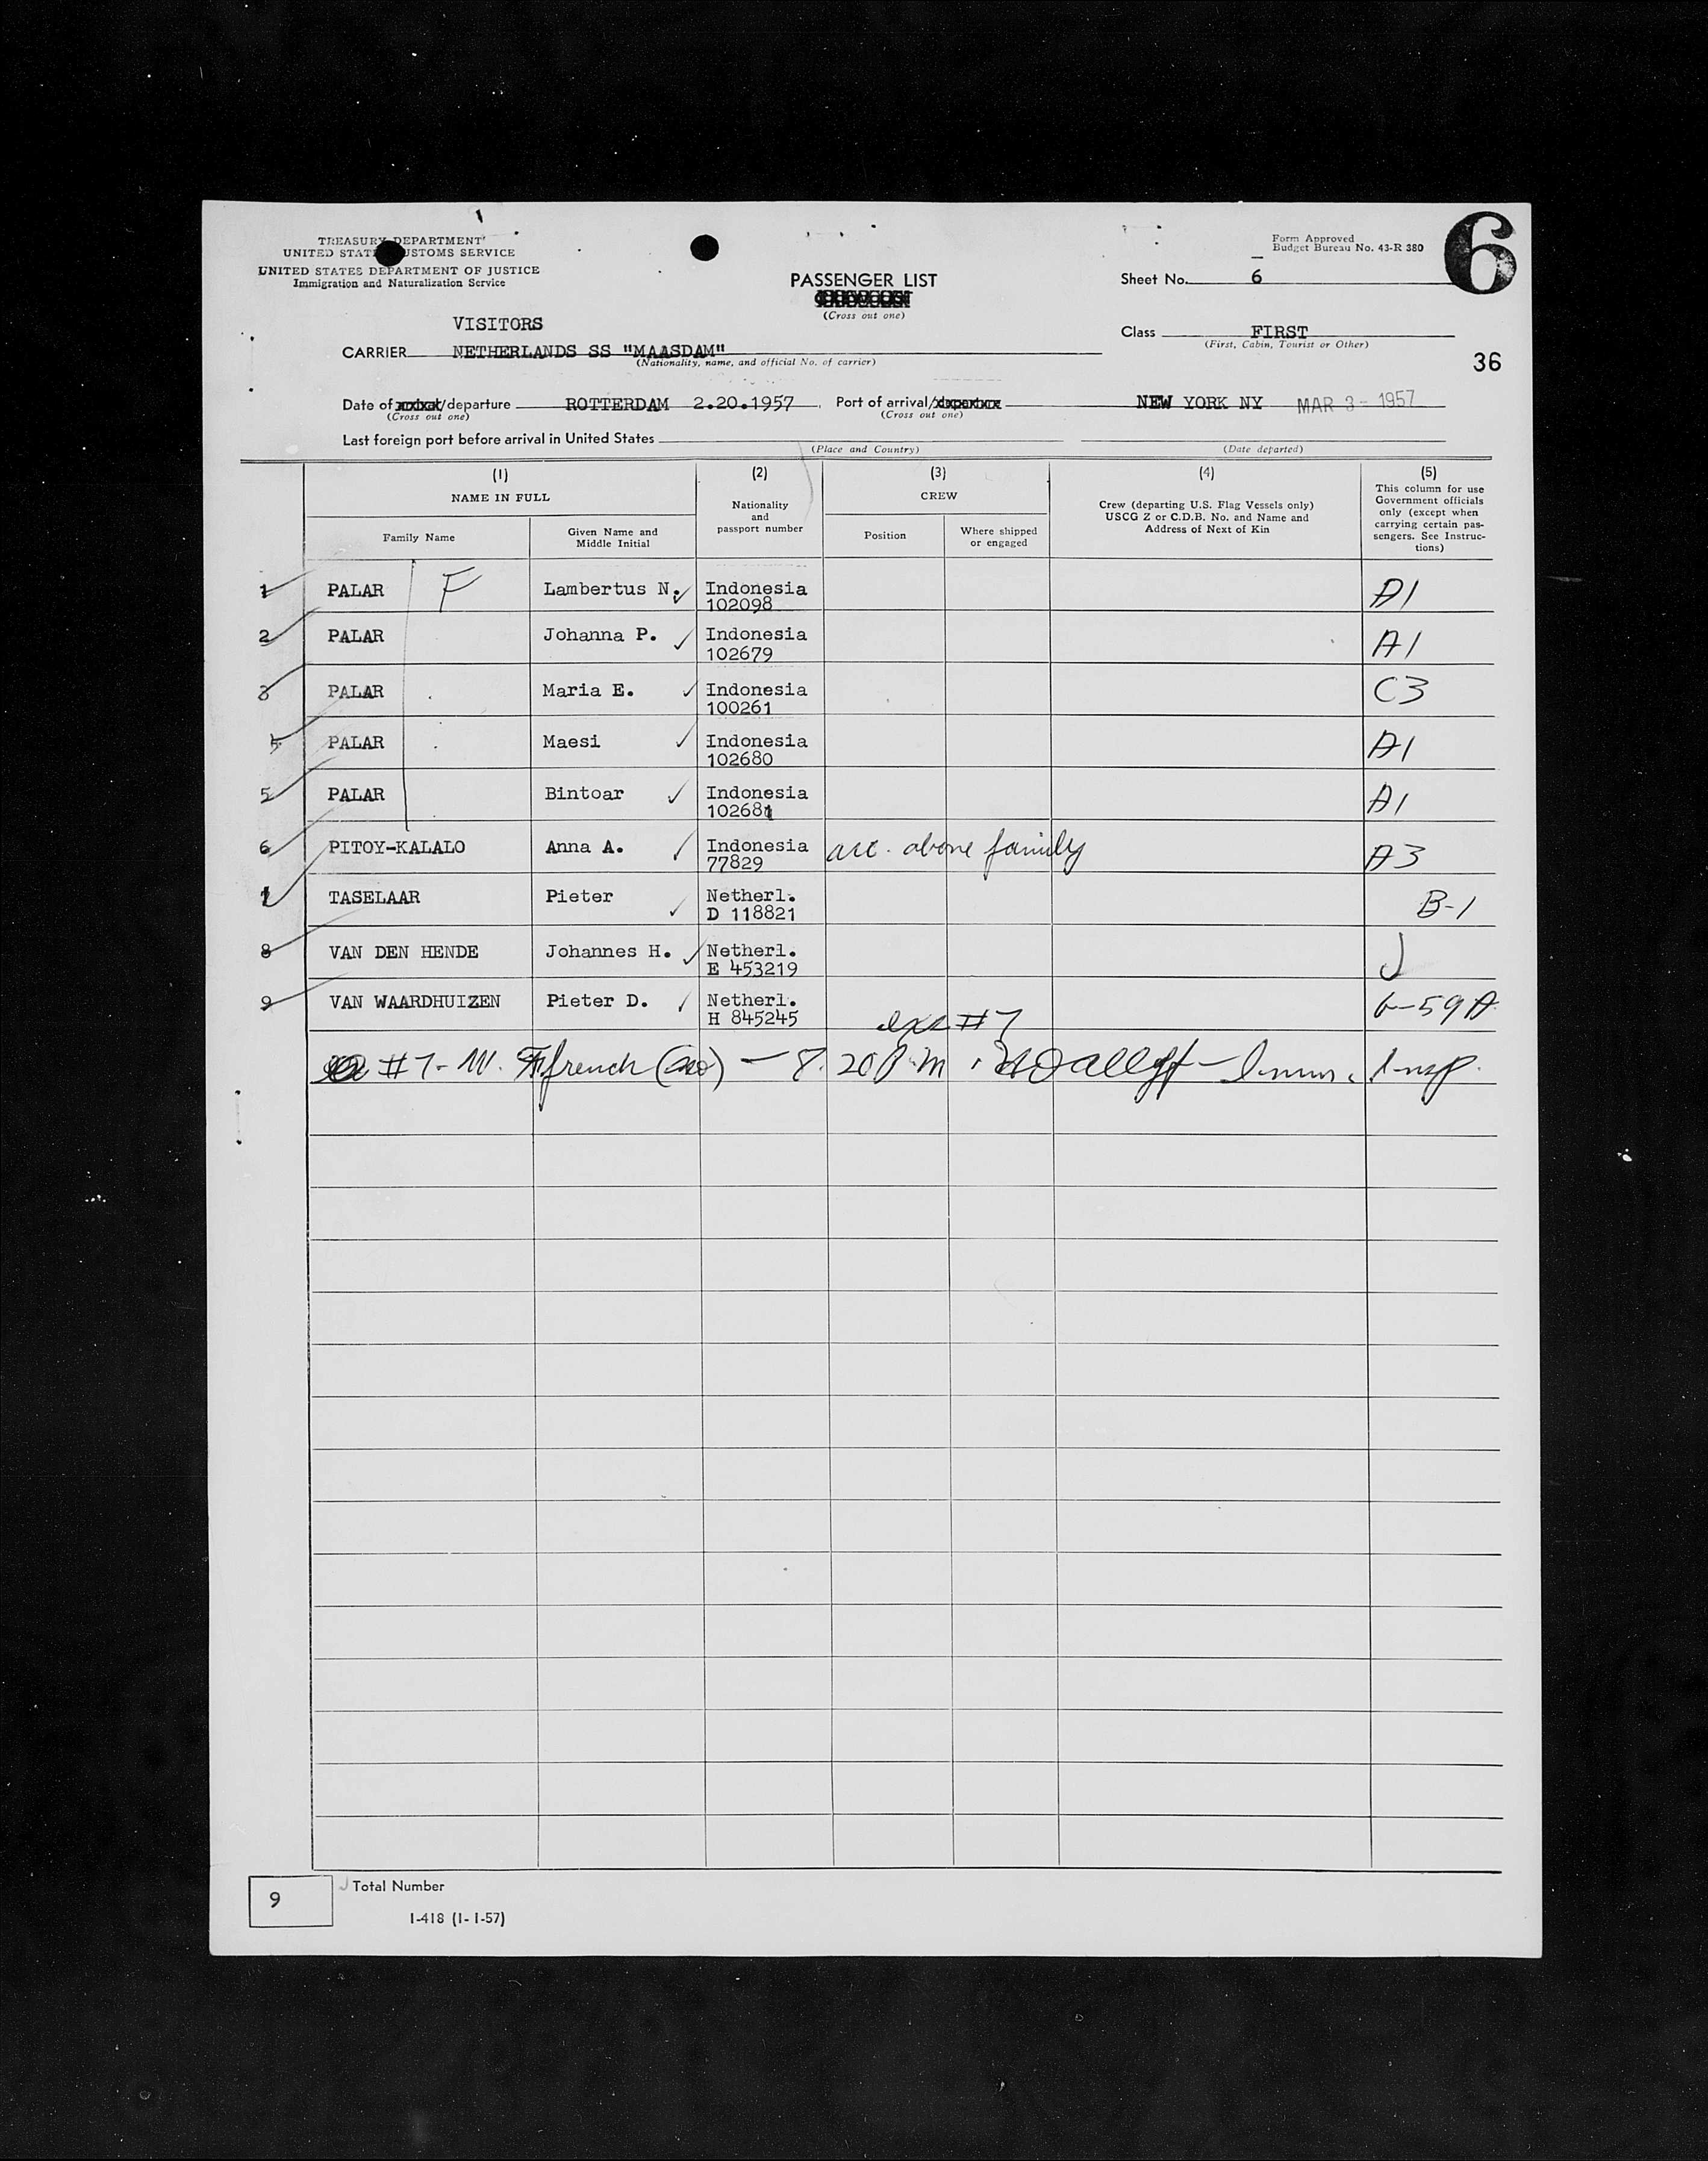 TREASURY DEPARTMENT
UNITED STATES CUSTOMS SERVICE
UNITED STATES DEPARTMENT OF JUSTICE
Immigration and Naturalization Service
PASSENGER LIST
(Cross out one)
Form Approved
Budget Bureau No. 43-R 380
6
Sheet No. 6
VISITORS
CARRIER NETHERLANDS SS "MAASDAM"
(Nationality, name, and official No. of carrier)
Class FIRST
(First, Cabin, Tourist or Other)
36
Date of /departure ROTTERDAM 2.20.1957 Port of arrival/ NEW YORK NY MAR 3 - 1957
(Cross out one) (Cross out one)
Last foreign port before arrival in United States
(Place and Country) (Date departed)
(1) (2) (3) (4) (5)
NAME IN FULL
Family Name
Given Name and Middle Initial
Nationality and passport number
CREW
Position
Where shipped or engaged
Crew (departing U.S. Flag Vessels only)
USCG Z or C.D.B. No. and Name and
Address of Next of Kin
This column for use
Government officials
only (except when
carrying certain pas-
sengers. See Instruc-
tions)
1 PALAR F Lambertus N. Indonesia A1
102098
2 PALAR Johanna P. Indonesia A1
102679
3 PALAR Maria E. Indonesia C3
100261
4 PALAR Maesi Indonesia A1
102680
5 PALAR Bintoar Indonesia A1
102681
6 PITOY-KALALO Anna A. Indonesia acc. above family A3
77829
7 TASELAAR Pieter Netherl. B-1
D 118821
8 VAN DEN HENDE Johannes H. Netherl.
E 453219
9 VAN WAARDHUIZEN Pieter D. Netherl. 6-59A
H 845245
#7
#7 - W. Ffrench (no) - 8.20 P.M. Immr. Insp.
9 Total Number
I-418 (1-1-57)